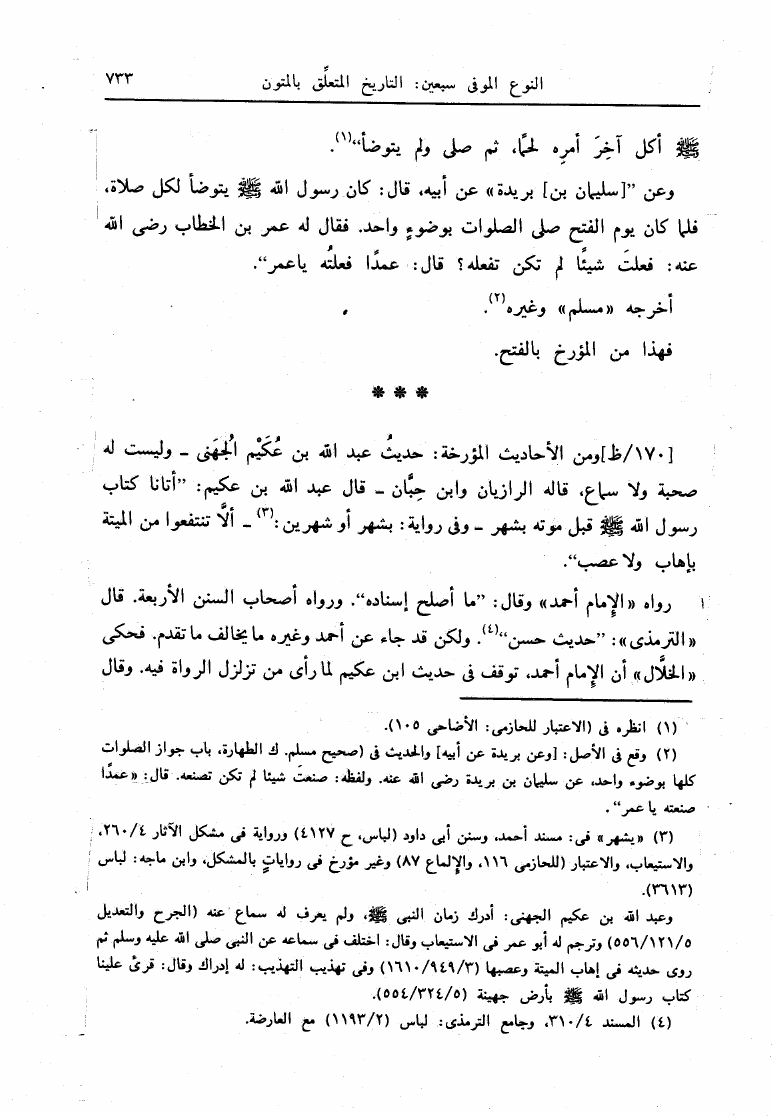 النوع الموفى سبعين: التاريخ المتعلِّق بالمتون ٧٣٣
ﷺ أكل آخِرَ أمرِه لحمًا، ثم صلى ولم يتوضأ“(١).
وعن ”[سليمان بن] بريدة» عن أبيه، قال: كان رسول الله ﷺ يتوضأ لكل صلاة،
فلما كان يوم الفتح صلى الصلوات بوضوءٍ واحد. فقال له عمر بن الخطاب رضى الله
عنه: فعلتَ شيئًا لم تكن تفعله؟ قال: عمدًا فعلتُه ياعمر“.
أخرجه «مسلم» وغيره(٢).
فهذا من المؤرخ بالفتح.
* * *
[١٧٠/ظ]ومن الأحاديث المؤرخة: حديثُ عبد الله بن عُكَيْم الجُهَنى – وليست له
صحبة ولا سماع، قاله الرازيان وابن حِبَّان – قال عبد الله بن عكيم: ”أتانا كتاب
رسول الله ﷺ قبل موته بشهر – وفى رواية: بشهر أو شهرين:(٣) – ألَّا تنتفعوا من الميتة
بإهاب ولا عصب“.
رواه «الإمام أحمد» وقال: ”ما أصلح إسناده“. ورواه أصحاب السنن الأربعة. قال
«الترمذى»: ”حديث حسن“(٤). ولكن قد جاء عن أحمد وغيره ما يخالف ما تقدم. فحكى
«الخلَّال» أن الإمام أحمد، توقف فى حديث ابن عكيم لما رأى من تزلزل الرواة فيه. وقال
(١) انظره فى (الاعتبار للحازمى: الأضاحى ١٠٥).
(٢) وقع فى الأصل: [وعن بريدة عن أبيه] والحديث فى (صحيح مسلم. ك الطهارة، باب جواز الصلوات
كلها بوضوء واحد، عن سليمان بن بريدة رضى الله عنه. ولفظه: صنعتَ شيئا لم تكن تصنعه. قال: «عمدًا
صنعته يا عمر“.
(٣) «بشهر» فى: مسند أحمد، وسنن أبى داود (لباس، ح ٤١٢٧) ورواية فى مشكل الآثار ٢٦٠/٤،
والاستيعاب، والاعتبار (للحازمى ١١٦، والإلماع ٨٧) وغير مؤرخ فى رواياتٍ بالمشكل، وابن ماجه: لباس
(٣٦١٣).
وعبد الله بن عكيم الجهنى: أدرك زمان النبى ﷺ، ولم يعرف له سماع عنه (الجرح والتعديل
٥٥٦/١٢١/٥) وترجم له أبو عمر فى الاستيعاب وقال: اختلف فى سماعه عن النبى صلى الله عليه وسلم ثم
روى حديثه فى إهاب الميتة وعصبها (١٦١٠/٩٤٩/٣) وفى تهذيب التهذيب: له إدراك وقال: قرئ علينا
كتاب رسول الله ﷺ بأرض جهينة (٥٥٤/٣٢٤/٥).
(٤) المسند ٣١٠/٤، وجامع الترمذى: لباس (١١٩٣/٢) مع العارضة.